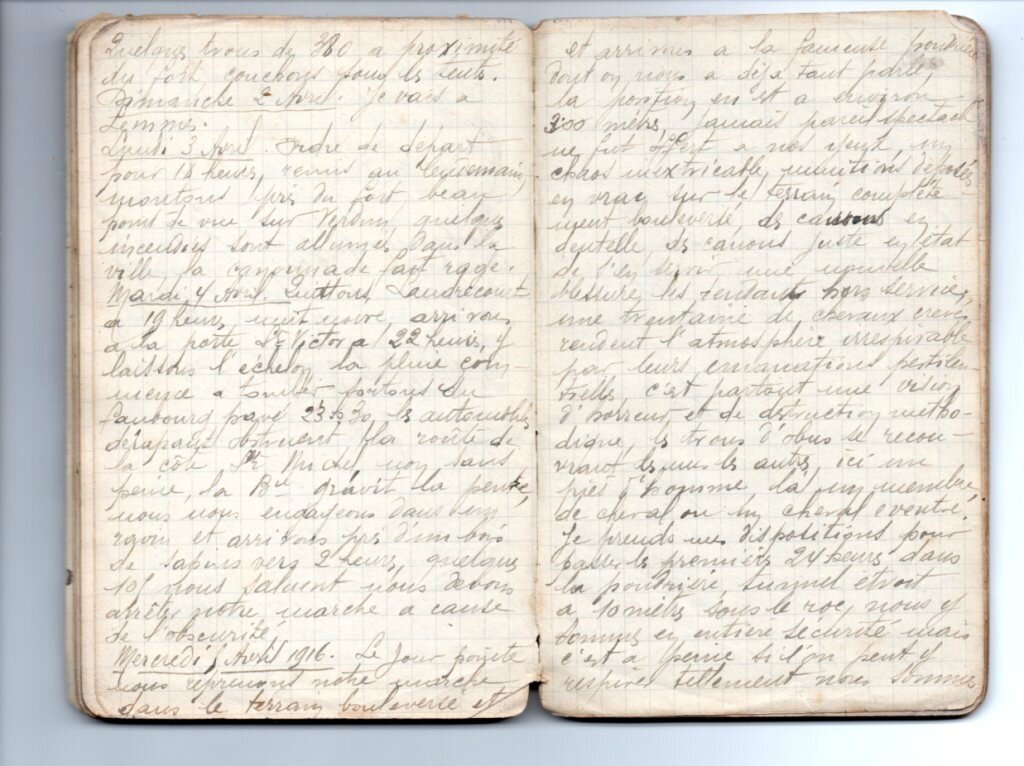 Quelques trous de 380 a proximité
du fort couchons sous les tentes.
Dimanche 2 Avril. Je vais a
Lemmes.
Lundi 3 Avril Ordre de départ
pour 18 heures, remis au lendemain,
montons près du fort beau
point de vue sur Verdun quelques
incendies sont allumés dans la
ville la canonnade fait rage.
Mardi 4 Avril. Quittons Landrecourt
a 19 heures, nuit noire arrivons
a la porte St Victor a 22 heures, y
laissons l'échelon la pluie com-
mence a tomber sortons du
faubourg pavé 23 h 30, les automobiles
dérapant obstruent la route de
la côte St Michel non sans
peine, la Bie gravit la pente,
nous nous engageons dans un
ravin et arrivons près d'un bois
de sapins vers 2 heures, quelques
105 nous saluent nous devons
arrêter notre marche a cause
de l'obscurité
Mercredi 5 Avril 1916. Le jour pointe
nous reprenons notre marche
dans le terrain bouleversé et
et arrivons a la fameuse poudrière
dont on nous a déja tant parlé,
la position en est a environ
300 mètres, Jamais pareil spectacle
ne fut offert a nos yeux, un
chaos inextricable, munitions déposées
en vrac sur le terrain complète
ment bouleversé, des caissons en
dentelle, des canons juste en état
de s'en servir une nouvelle
blessure les rendant hors service,
une trentaine de chevaux crevés
rendent l'atmosphère irrespirable
par leurs émanations pestilen-
tielles c'est partout une vision
d'horreur et de destruction métho-
dique, les trous d'obus se recou-
vrant les uns les autres, ici un
pied d'homme la un membre
de cheval ou un cheval éventré.
Je prends mes dispositions pour
passer les premières 24 heures dans
la poudrière, tunnel étroit
a 10 mètres sous le roc, nous y
sommes en entière sécurité mais
c'est a peine si l'on peut y
respirer tellement nous sommes